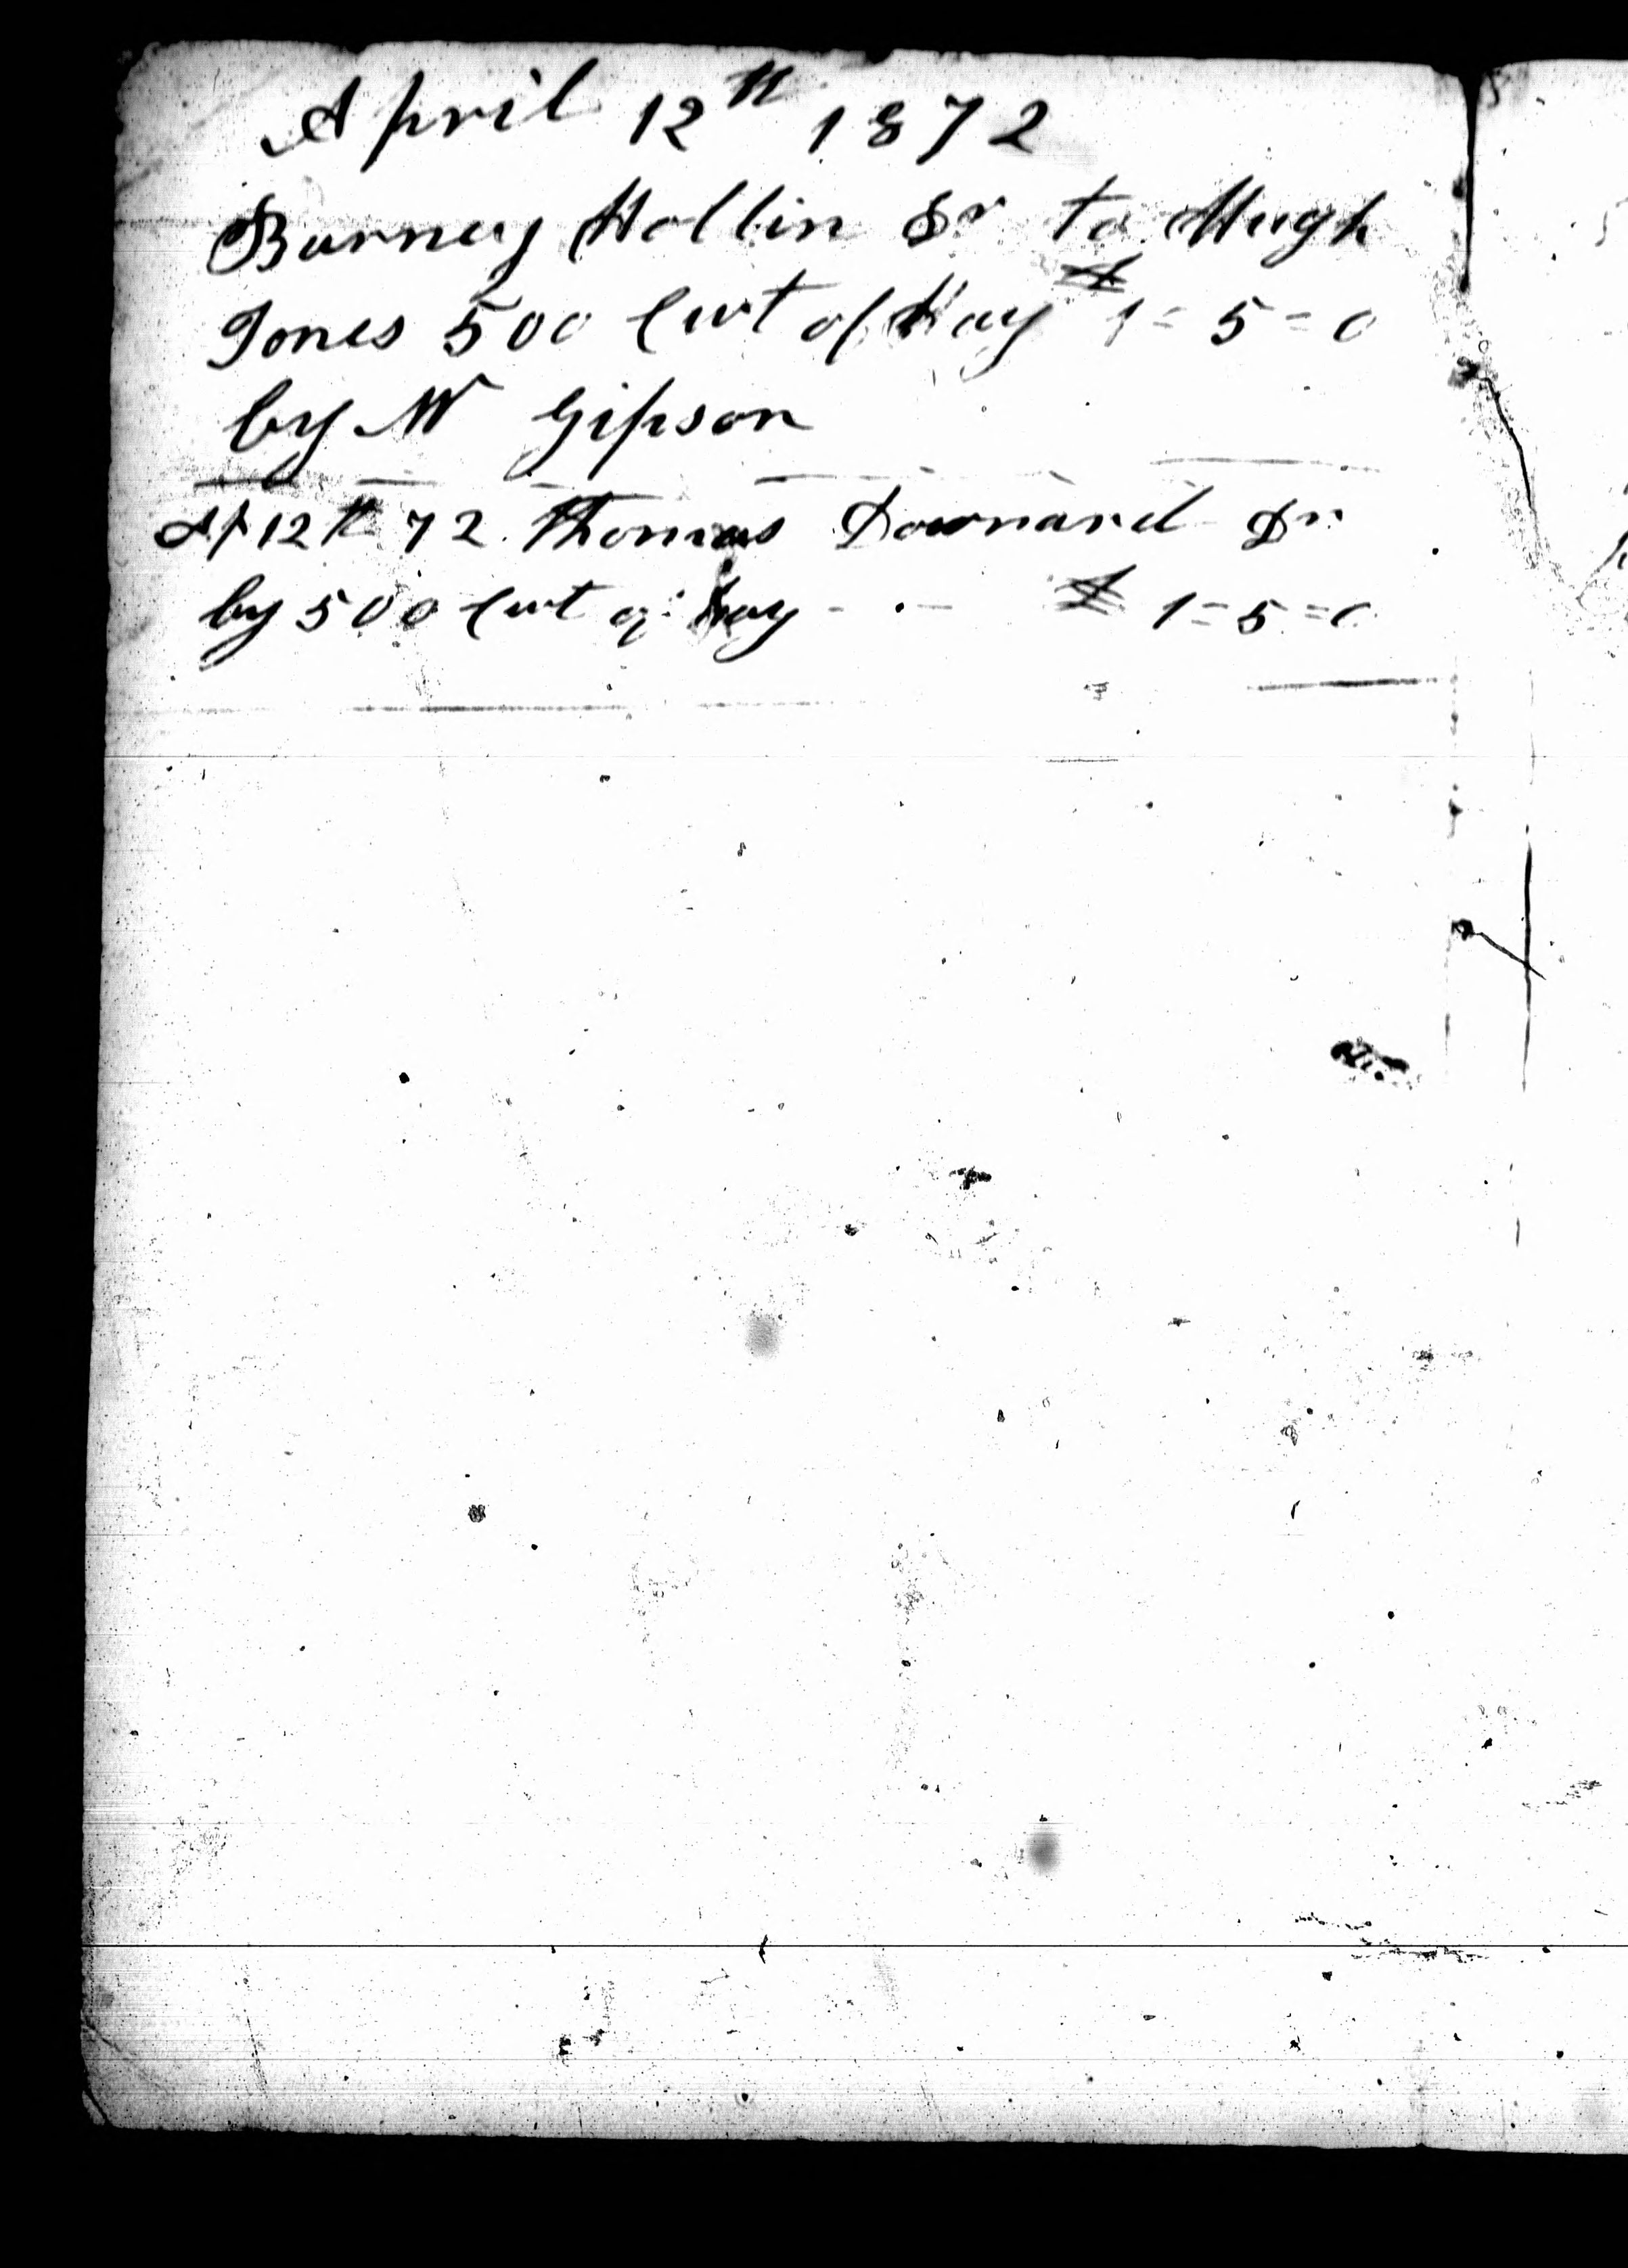 April 12th 1872
Barney Hollin Dr to Hugh
Jones 500 Cwt of Hay £ 1=5=0
by W Gipson
Ap 12th 72. Thomas Downard Dr
by 500 Cwt of hay - . - £ 1=5=0